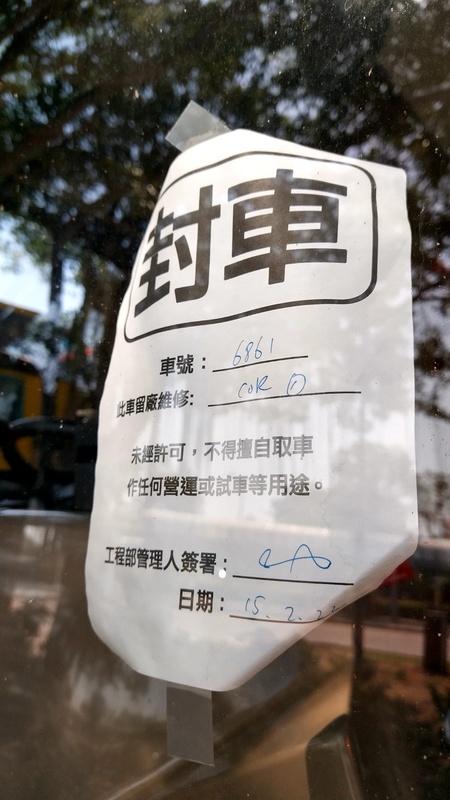 封車
車號：6861
此車留廠維修: COR ①
未經許可，不得擅自取車
作任何營運或試車等用途。
工程部管理人簽署：
日期：15.2.22